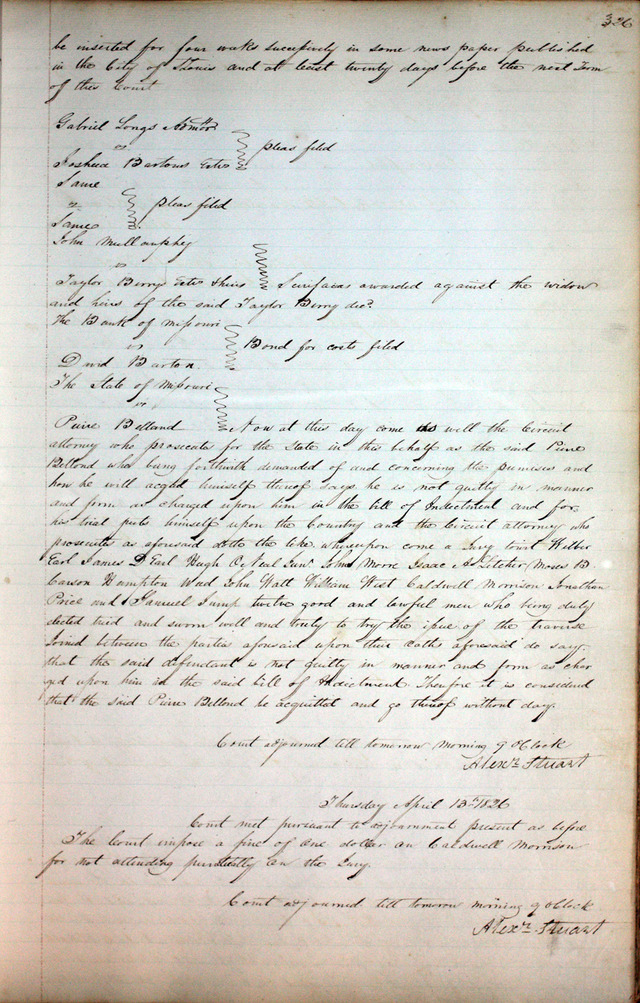 326
be inserted for four weeks succesively in some news paper published
in the City of St Louis and at least twenty days before the next Term
of this Court
Gabriel Longs Admor
vs
pleas filed
Joshua Bartons Exts
Same
vs
pleas filed
Same
John Mullanphy
vs
Taylor Berrys Exts & heirs Scirefacias awarded against the widow
and heirs of the said Taylor Berry decd.
The Bank of Missouri
vs
Bond for costs filed
David Barton
The State of Missouri
vs
Pierre Belland Now at this day come as well the Circuit
attorney who prosecutes for the State in this behalf as the said Pierre
Bellond who being forthwith demanded of and concerning the premises and
how he will acquit himself thereof says he is not guilty in manner
and form as charged upon him in the bill of Indictment and for
his trial puts himself upon the Country and the Circuit attorney who
prosecutes as aforesaid doth the like whereupon come a Jury towit Wilber
Earl James D Earl Hugh O Neal John Moore Isaac A Letcher Moses B
Carson Hampton Wad John Watt William West Caldwell Morrison Jonathan
Price and Samuel Jump twelve good and lawful men who being duly
elected tried and sworn well and truly to try the issue of the traverse
Joined between the parties aforesaid upon their oaths aforesaid do say
that the said defendant is not guilty in manner and form as char
ged upon him in the said bill of Indictment. Therefore it is considered
that the said Pierre Bellond be acquitted and go thereof without day.
Court adjourned till tomorrow morning 9 OClock
Alexr. Stuart
Thursday April 13th 1826
Court met pursuant to adjournment present as before
The Court impose a fine of One dollar on Caldwell Morrison
for not attending punctually on the Jury.
Court adjourned till tomorrow morning 9 oClock
Alexr. Stuart